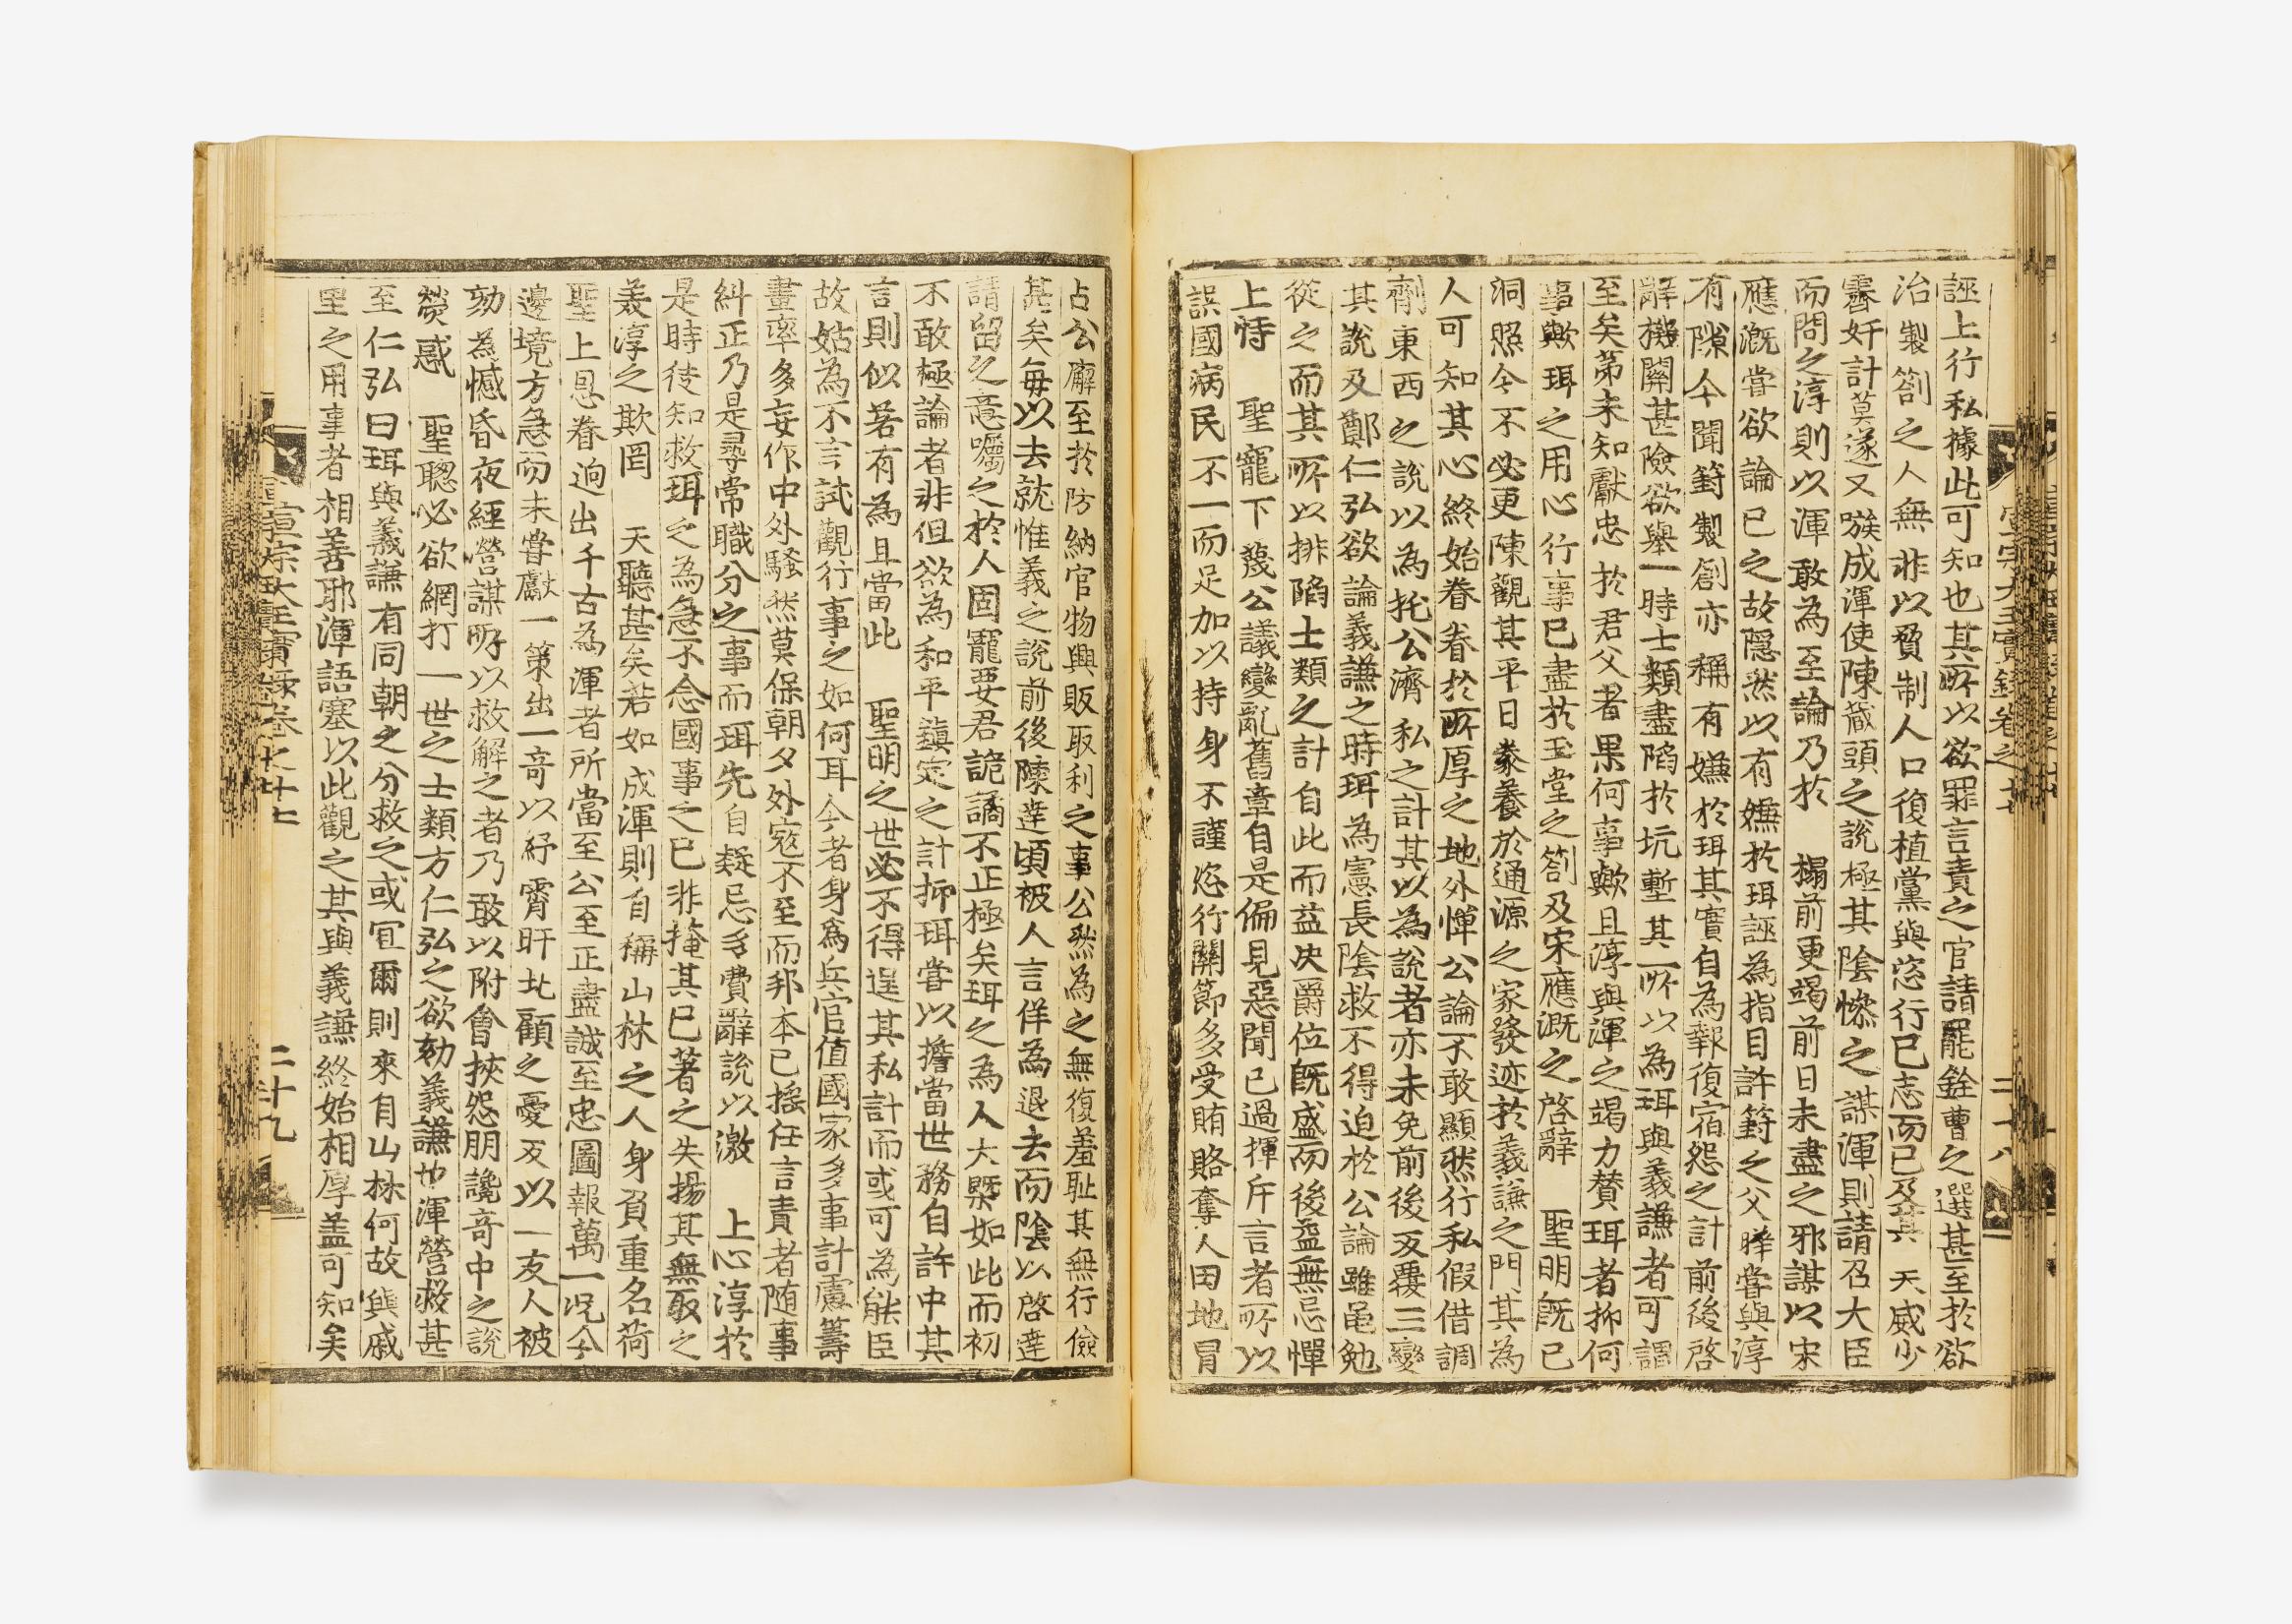 誣上行私據此可知也其所以欲罪言責之官請罷銓曹之選甚至於欲
治製劄之人無非以箝制人口復植黨與恣行己志而已及其 天威少
霽奸計莫遂又嗾成渾使陳藏頭之說極其陰慘之謀渾則請召大臣
而問之淳則以渾敢為至論乃於 榻前更竭前日未盡之邪謀以宋
應漑嘗欲論己之故隱然以有嫌於珥誣為指目許篈之父曄嘗與淳
有隙今聞篈製劄亦稱有嫌於珥其實自為報復宿怨之計前後啓
辭機關甚險欲舉一時士類盡陷於坑塹其所以為珥與義謙者可謂
至矣第未知獻忠於君父者果何事歟且淳與渾之竭力贊珥者抑何
事歟珥之用心行事已盡於玉堂之劄及宋應漑之啓辭 聖明旣已
洞照今不必更陳觀其平日豢養於通源之家發迹於義謙之門其為
人可知其心終始眷眷於所厚之地外憚公論不敢顯然行私假借調
劑東西之說以為托公濟私之計其以為說者亦未免前後反覆三變
其說及鄭仁弘欲論義謙之時珥為憲長陰救不得迫於公論雖黽勉
從之而其所以排陷士類之計自此而益决爵位旣盛而後益無忌憚
上恃 聖寵下蔑公議變亂舊章自是偏見惡聞已過揮斥言者所以
誤國病民不一而足加以持身不謹恣行關節多受賄賂奪人田地冒
占公廨至於防納官物興販取利之事公然為之無復羞耻其無行儉
甚矣每以去就惟義之說前後陳達頃被人言佯為退去而陰以啓達
請留之意囑之於人固寵要君詭譎不正極矣珥之為人大槩如此而初
不敢極論者非但欲為和平鎭定之計抑珥嘗以擔當世務自許中其
言則似若有為且當此 聖明之世必不得逞其私計而或可為能臣
故姑為不言試觀行事之如何耳今者身為兵官值國家多事計慮籌
畫率多妄作中外騷然莫保朝夕外寇不至而邦本已搖任言責者隨事
糾正乃是尋常職分之事而珥先自疑忌多費辭說以激 上心淳於
是時徒知救珥之為急不念國事之已非掩其已著之失揚其無取之
善淳之欺罔 天聽甚矣若如成渾則自稱山林之人身負重名荷
聖上恩眷逈出千古為渾者所當至公至正盡誠至忠圖報萬一况今
邊境方急而未嘗獻一策出一奇以紓霄旰北顧之憂反以一友人被
劾為憾昏夜經營謀所以救解之者乃敢以附會挾怨朋讒奇中之說
熒惑 聖聰必欲網打一世之士類方仁弘之欲劾義謙也渾營救甚
至仁弘曰珥與義謙有同朝之分救之或宜爾則來自山林何故與戚
里之用事者相善耶渾語塞以此觀之其與義謙終始相厚盖可知矣
宣宗大王實錄卷之十七
二十九
宣宗大王實錄卷之十七
二十八